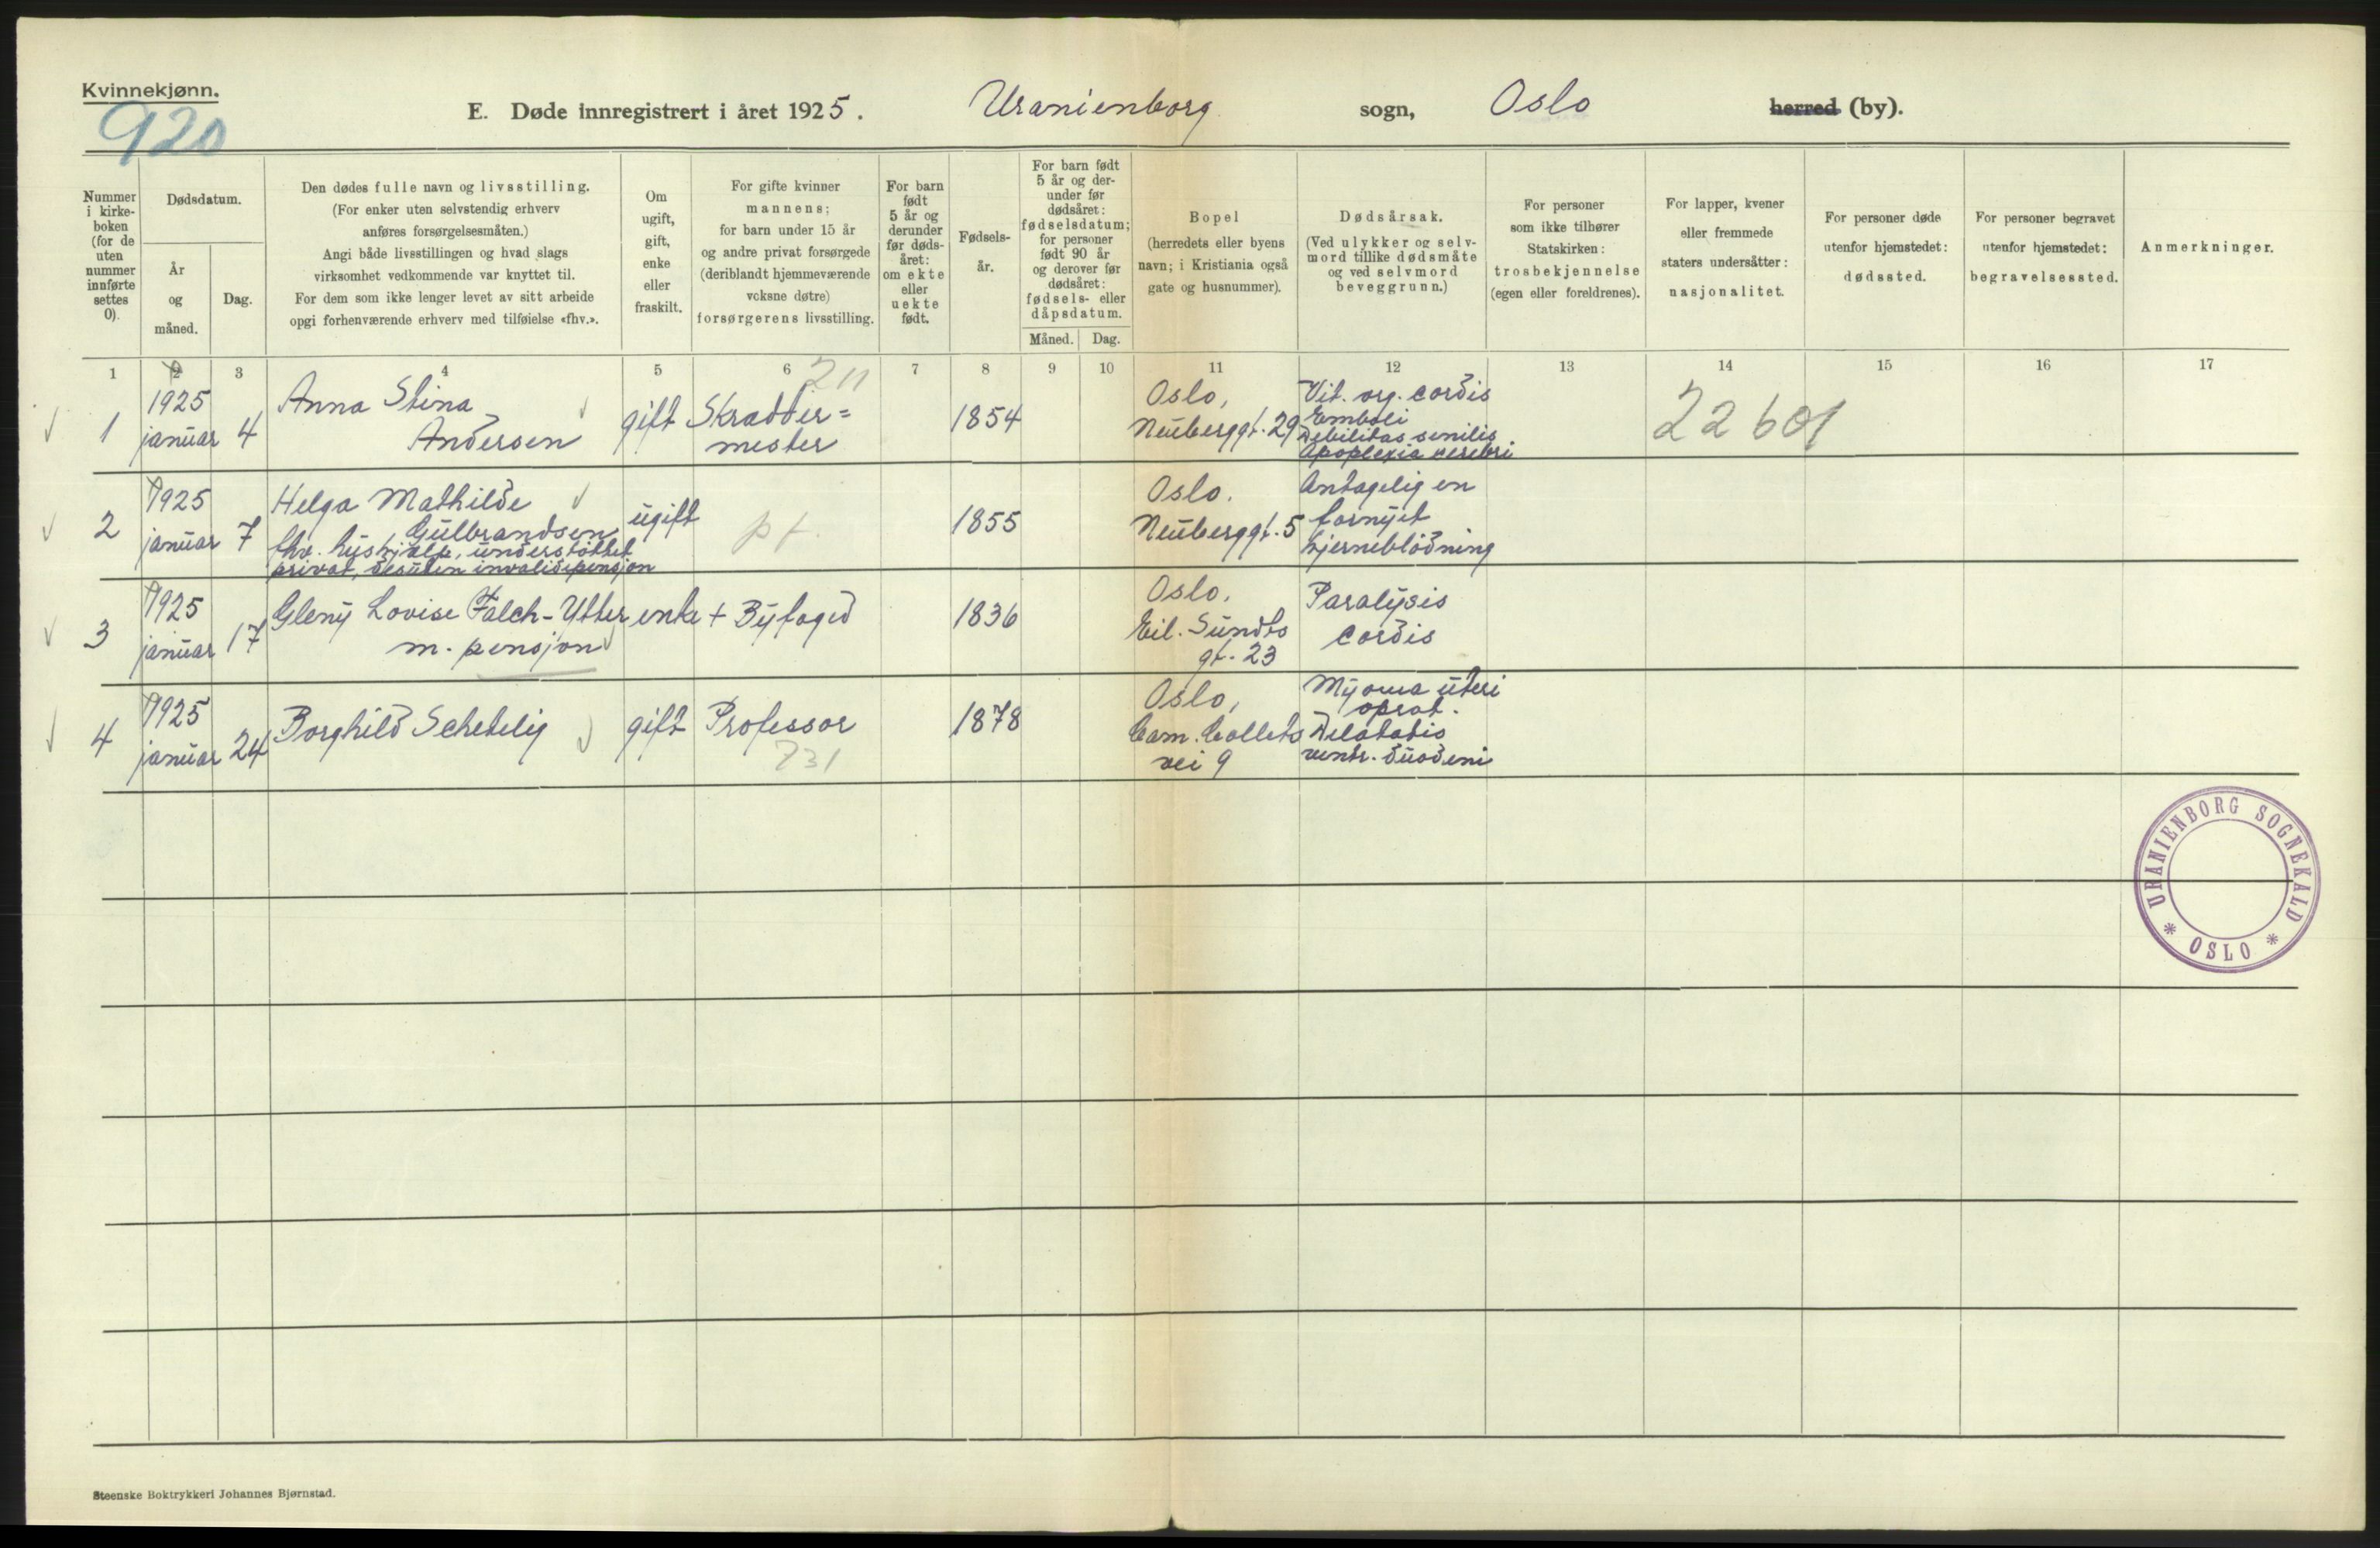 Kvinnekjønn.
920
E. Døde innregistrert i året 1925. Uranienborg sogn, Oslo herred (by).
Nummer
i kirke-
boken
(for de
uten
nummer
innførte
settes
0).
Dødsdatum.
År
og
måned.
Dag.
Den dødes fulle navn og livsstilling.
(For enker uten selvstendig erhverv
anføres forsørgelsesmåten.)
Angi både livsstillingen og hvad slags
virksomhet vedkommende var knyttet til.
For dem som ikke lenger levet av sitt arbeide
opgi forhenværende erhverv med tilføielse «fhv.».
Om
ugift,
gift,
enke
eller
fraskilt.
For gifte kvinner
mannens;
for barn under 15 år
og andre privat forsørgede
(deriblandt hjemmeværende
voksne døtre)
forsørgerens livsstilling.
For barn
født
5 år og
derunder
før døds-
året:
om ekte
eller
uekte
født.
Fødsels-
år.
For barn født
5 år og der-
under før
dødsåret:
fødselsdatum;
for personer
født 90 år
og derover før
dødsåret:
fødsels- eller
dåpsdatum.
Måned. Dag.
Bopel
(herredets eller byens
navn; i Kristiania også
gate og husnummer).
Dødsårsak.
(Ved ulykker og selv-
mord tillike dødsmåte
og ved selvmord
beveggrunn.)
For personer
som ikke tilhører
Statskirken:
trosbekjennelse
(egen eller foreldrenes).
For lapper, kvener
eller fremmede
staters undersåtter:
nasjonalitet.
For personer døde
utenfor hjemstedet:
dødssted.
For personer begravet
utenfor hjemstedet:
begravelsessted.
Anmerkninger.
1 2 3 4 5 6 7 8 9 10 11 12 13 14 15 16 17
1
1925
januar 4
Anna Stina
Andersen
gift
211
Skrædder=
mester
1854
Oslo,
Neuberggt. 29
Vit. org. cordis
Emboli
Debilitas senilis
Apoplexia cerebri.
22601
2
1925
januar 7
Helga Mathilde
Gulbrandsen
fhv. hushjælp, understøttet
privat, desuten invalidepensjon
ugift
pt.
1855
Oslo.
Neuberggt. 5
Antagelig en
fornyet
hjerneblødning
3
1925
januar 17
Gleny Lovise Falch-Utter
m. pensjon
enke
+ Byfoged
1836
Oslo.
Eil. Sundts
gt. 23
Paralysis
cordis
4
1925
januar 24
Borghild Schetelig
gift
Professor
731
1878
Oslo,
Cam. Collets
vei 9
Myoma uteri
oprat.
Delatatio
ventr. duodeni
URANIENBORG SOGNEKALD
* OSLO *
Steenske Boktrykkeri Johannes Bjørnstad.